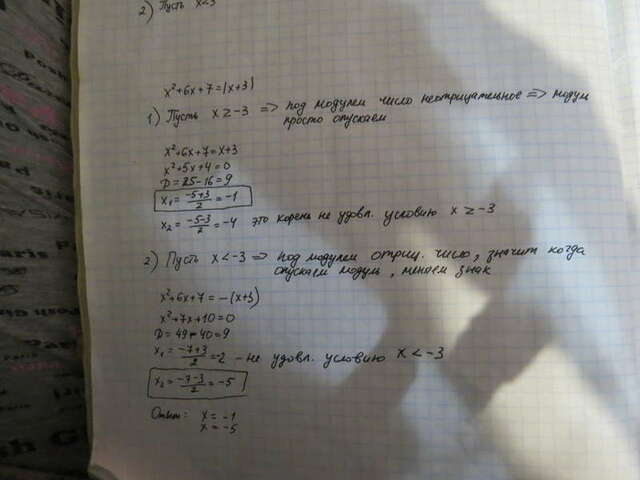 2) Пусть x<3
x²+6x+7=|x+3|
1) Пусть x≥-3 => под модулем число неотрицательное => модуль
просто опускаем
x²+6x+7=x+3
x²+5x+4=0
D=25-16=9
x₁=(-5+3)/2=-1
x₂=(-5-3)/2=-4 это корень не удовл. условию x≥-3
2) Пусть x<-3 => под модулем отриц. число, значит когда
опускаем модуль, меняем знак
x²+6x+7=-(x+3)
x²+7x+10=0
D=49-40=9
x₁=(-7+3)/2=-2 - не удовл. условию x<-3
x₂=(-7-3)/2=-5
Ответ: x=-1
x=-5